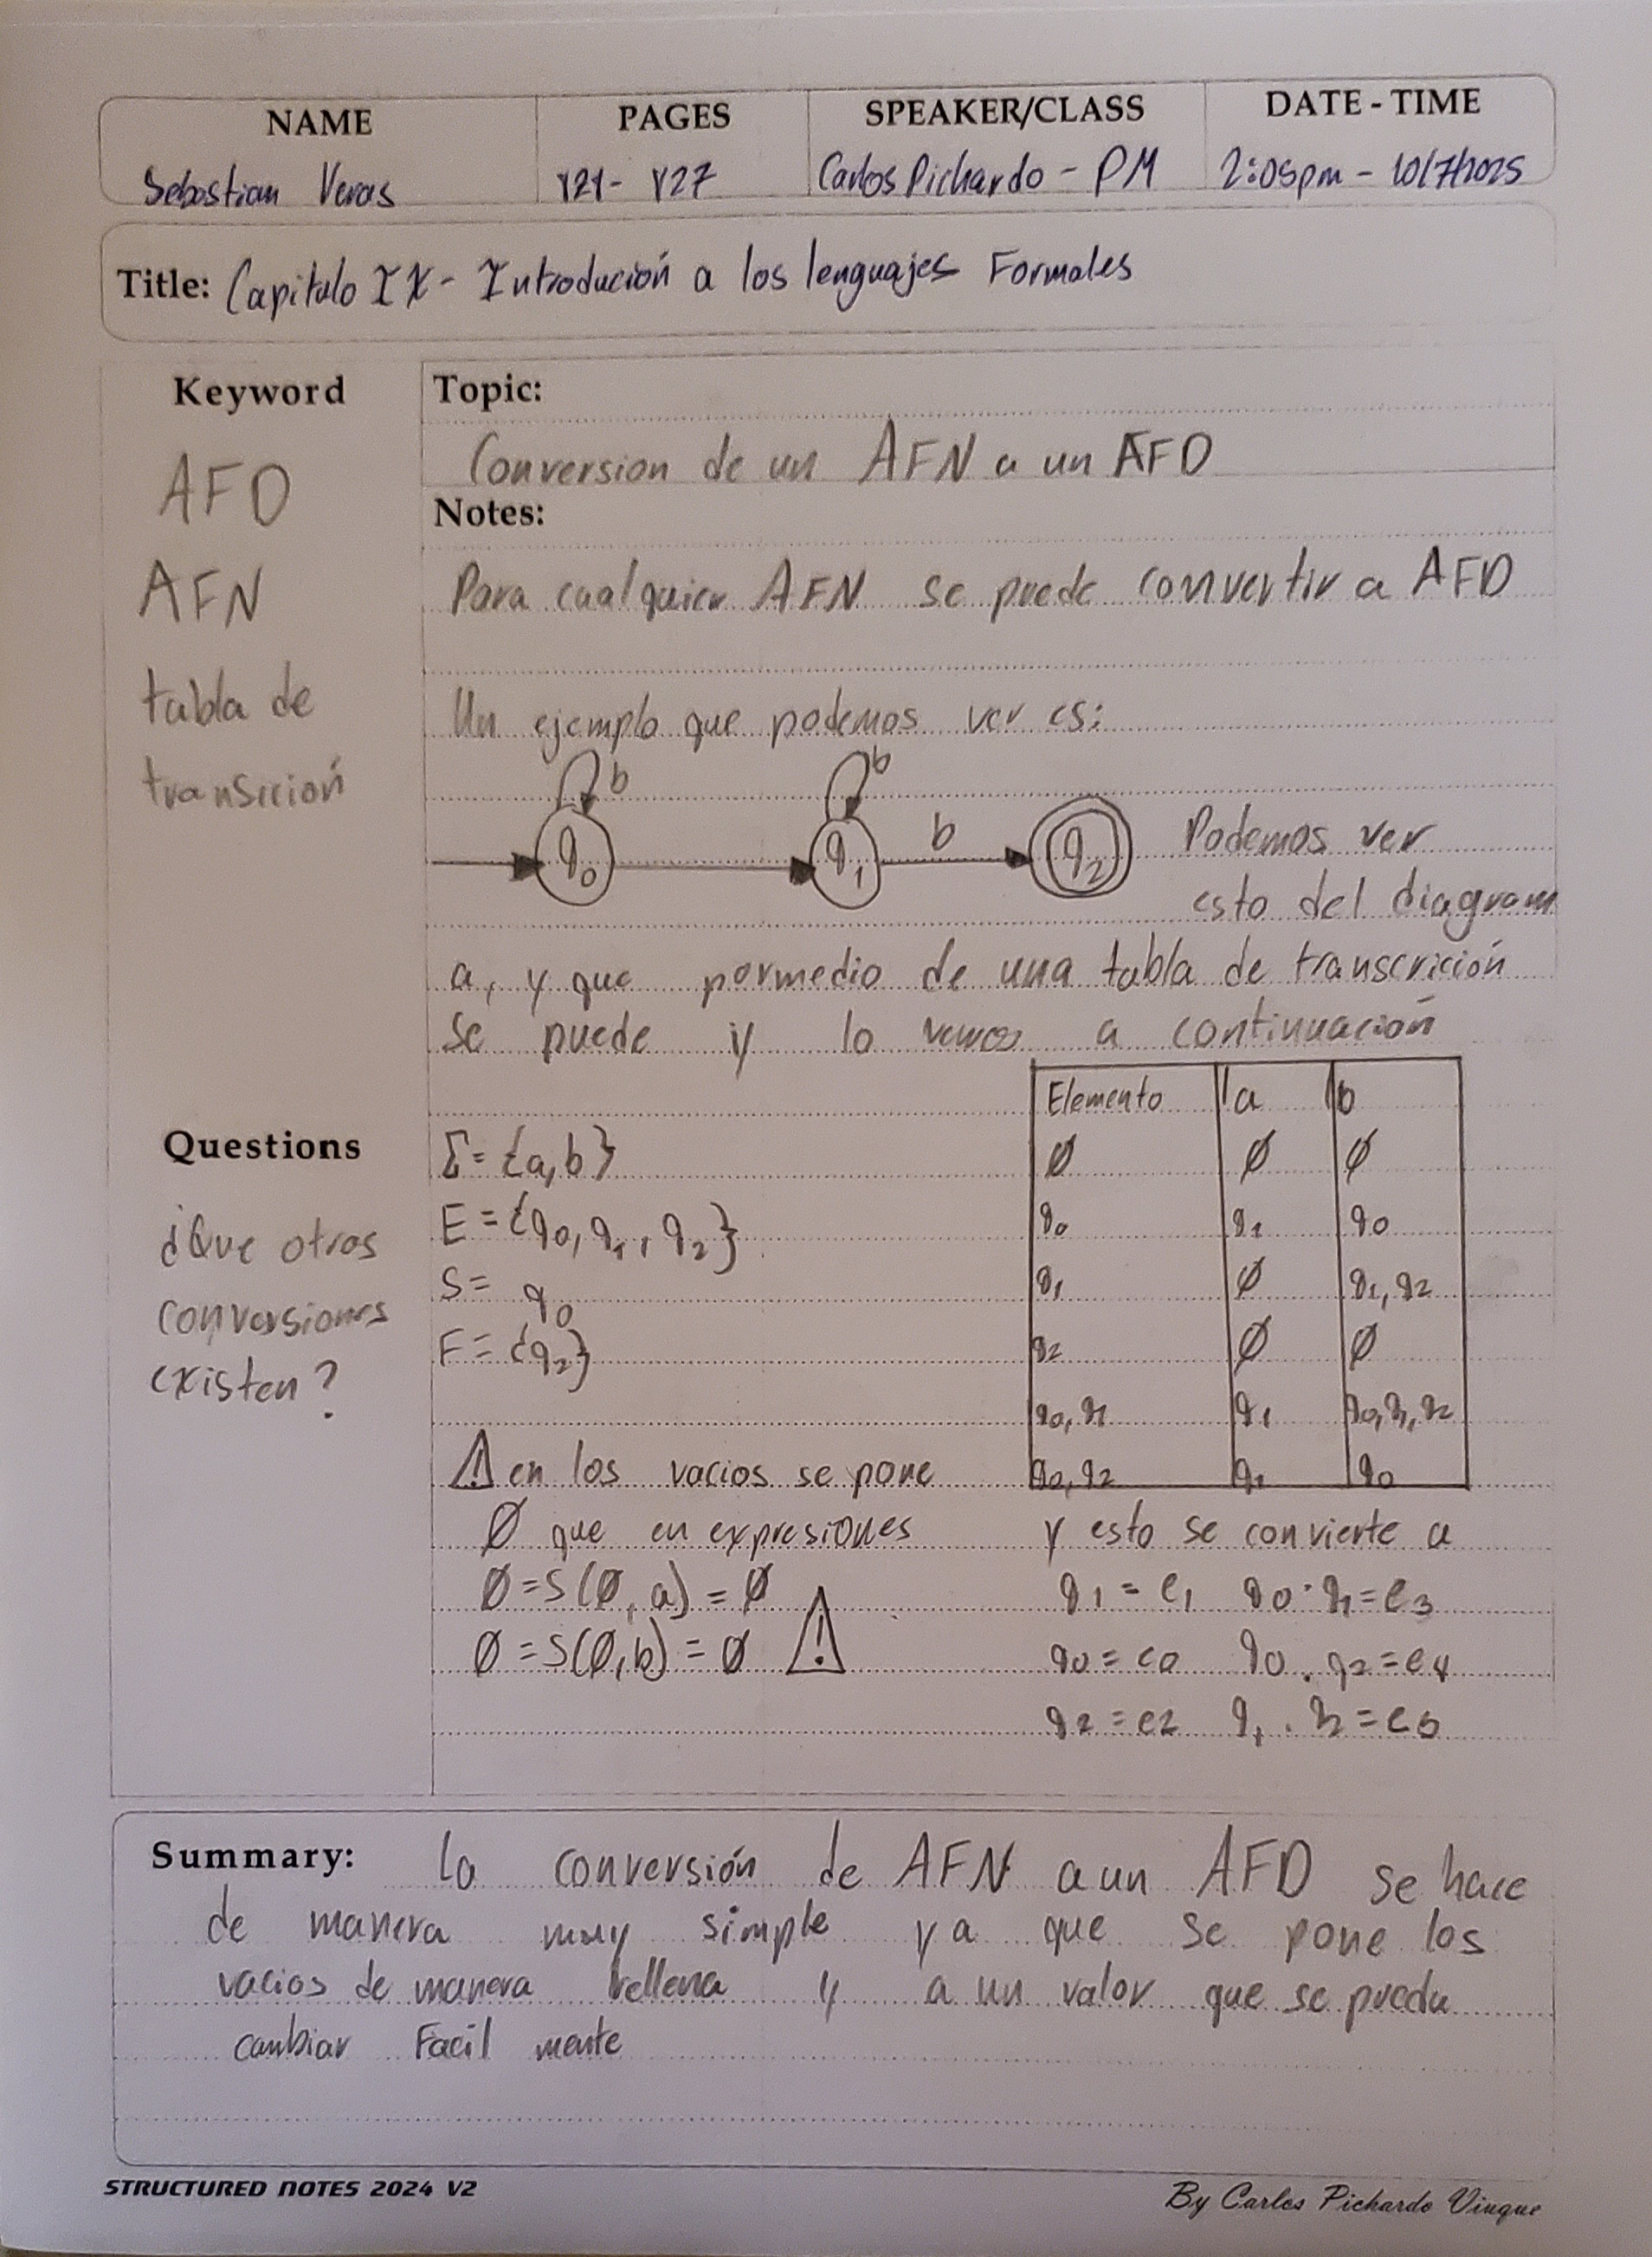 NAME PAGES SPEAKER/CLASS DATE - TIME
Sebastian Veras 121- 127 Carlos Pichardo - PM 2:05pm - 10/7/2025
Title: Capitulo IX - Introdución a los lenguajes Formales
Keyword
AFD
AFN
tabla de
transición
Topic:
Conversion de un AFN a un AFD
Notes:
Para cualquier AFN se puede convertir a AFD
Un ejemplo que podemos ver es:
b b
q0 q1 b q2 Podemos ver
esto del diagram
a, y que pormedio de una tabla de transcrición
se puede y lo vemos a continuación
Questions
¿Que otras
conversiones
existen?
Σ = {a,b}
E = {q0, q1, q2}
S = q0
F = {q2}
⚠ en los vacios se pone
∅ que en expresiones
∅ = S(∅, a) = ∅
∅ = S(∅, b) = ∅ ⚠
Elemento a b
∅ ∅ ∅
q0 q1 q0
q1 ∅ q1, q2
q2 ∅ ∅
q0, q1 q1 q0, q1, q2
q0, q2 q1 q0
y esto se convierte a
q1 = e1 q0 · q1 = e3
q0 = e0 q0 . q2 = e4
q2 = e2 q1 . q2 = e5
Summary: La conversión de AFN a un AFD se hace
de manera muy simple ya que se pone los
vacios de manera rellena y a un valor que se pueda
cambiar Facil mente
STRUCTURED NOTES 2024 V2
By Carlos Pichardo Viuque